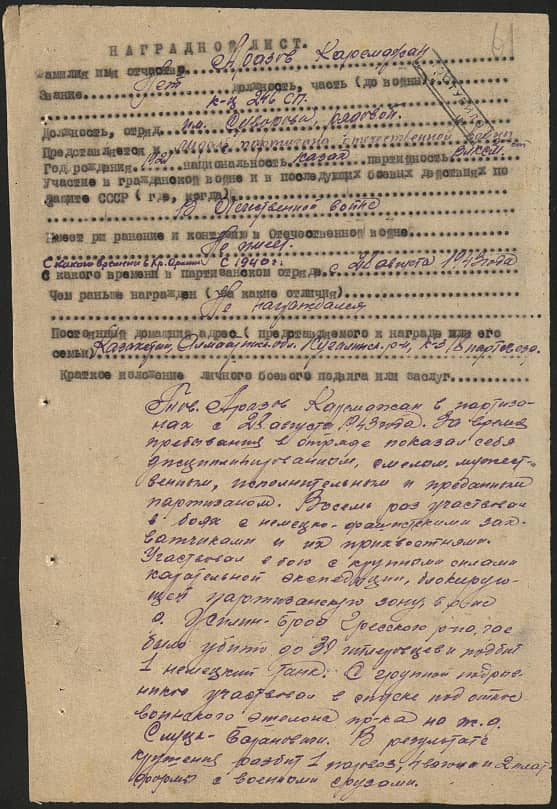 61
НАГРАДНОЙ ЛИСТ.
Фамилия имя отчество Аразов Каремжан
Звание. Нет должность, часть (до войны)
к-ц 246 СП.
Должность, отряд им. Суворова, рядовой.
Представляется к медали партизана Отечественной войны
Год рождения 1921 национальность казах партийность ВЛКСМ
Участие в гражданской войне и в последующих боевых действиях по
защите СССР (где, когда)
В Отечественной войне
Имеет ли ранение и контузию в Отечественной войне.
Не имеет.
С какого времени в Кр. Армии С 1940 г.
С какого времени в партизанском отряде с 28 августа 1943 года
Чем раньше награжден (за какие отличия)
Не награждался
Постоянный домашний адрес ( представляемого к награде или его
семьи) Казахстан, Алмаатинск. обл. р-н, к-з 18 партсъезд.
Краткое изложение личного боевого подвига или заслуг.
Тов. Аразов Каремжан в партиза-
нах с 28 августа 1943 года. За время
пребывания в отряде показал себя
дисциплинированным, смелым, мужест-
венным, исполнительным и преданным
партизаном. Восемь раз участвовал
в боях с немецко-фашистскими зах-
ватчиками и их прихвостнями.
Участвовал в бою с крупными силами
карательной экспедиции, блокирую-
щей партизанскую зону, в р-не
д. Жилин-Брод Гресского р-на, где
было убито до 30 гитлеровцев и подбит
1 немецкий танк. С группой подрыв-
ников участвовал в спуске под откос
воинского эшелона пр-ка на ж.д.
Слуцк-Барановичи. В результате
крушения разбит 1 паровоз, 4 вагона и 2 плат-
формы с военными грузами.